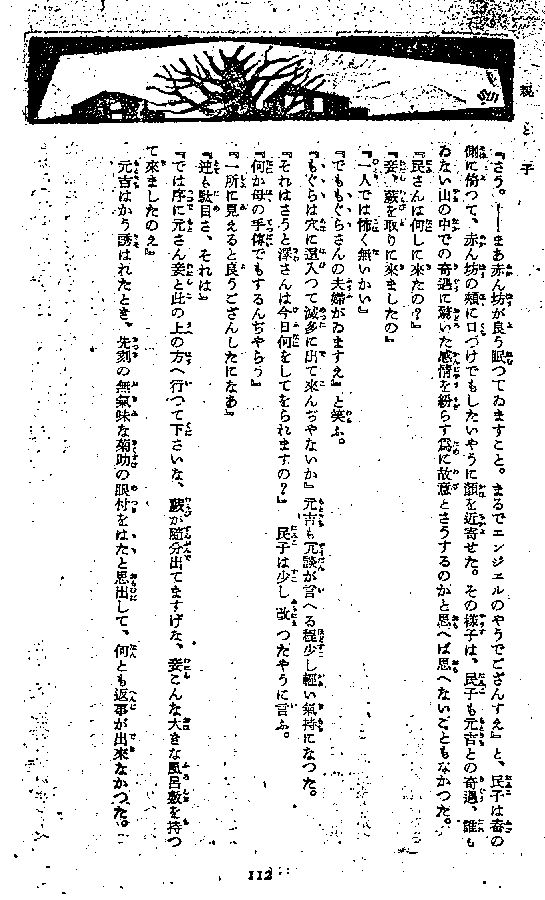 親と子
『さう。――まあ赤ん坊が良う眠つてゐますこと。まるでエンジェルのやうでござんすえ』と、民子は毒の
側に倚つて、赤ん坊の頰に口づけでもしたいやうに顏を近寄せた。その樣子は、民子も元吉との奇遇、誰も
ゐない山の中での奇遇に驚いた感情を紛らす爲に故意とさうするのかと思へば思へないこともなかつた。
『民さんは何しに來たの？』
『妾、蕨を取りに來ましたの』
『一人では怖く無いかい』
『でももぐらさんの夫婦がゐますえ』と笑ふ。
『もぐらは穴に這入つて滅多に出て來んぢやないか』元吉も冗談が言へる程少し輕い氣持になつた。
『それはさうと深さんは今日何をしてをられますの？』民子は少し改つたやうに言ふ。
『何か母の手傳でもするんぢやらう』
『一所に見えると良うござんしたになあ』
『迚も駄目さ、それは』
『では序に元さん妾と此の上の方へ行つて下さいな、蕨が隨分出てますげな、妾こんな大きな風呂敷を持つ
て來ましたのえ』
元吉はかう誘はれたとき、先刻の無氣味な菊助の眼付をはたと思出して、何とも返事が出來なかつた。
112